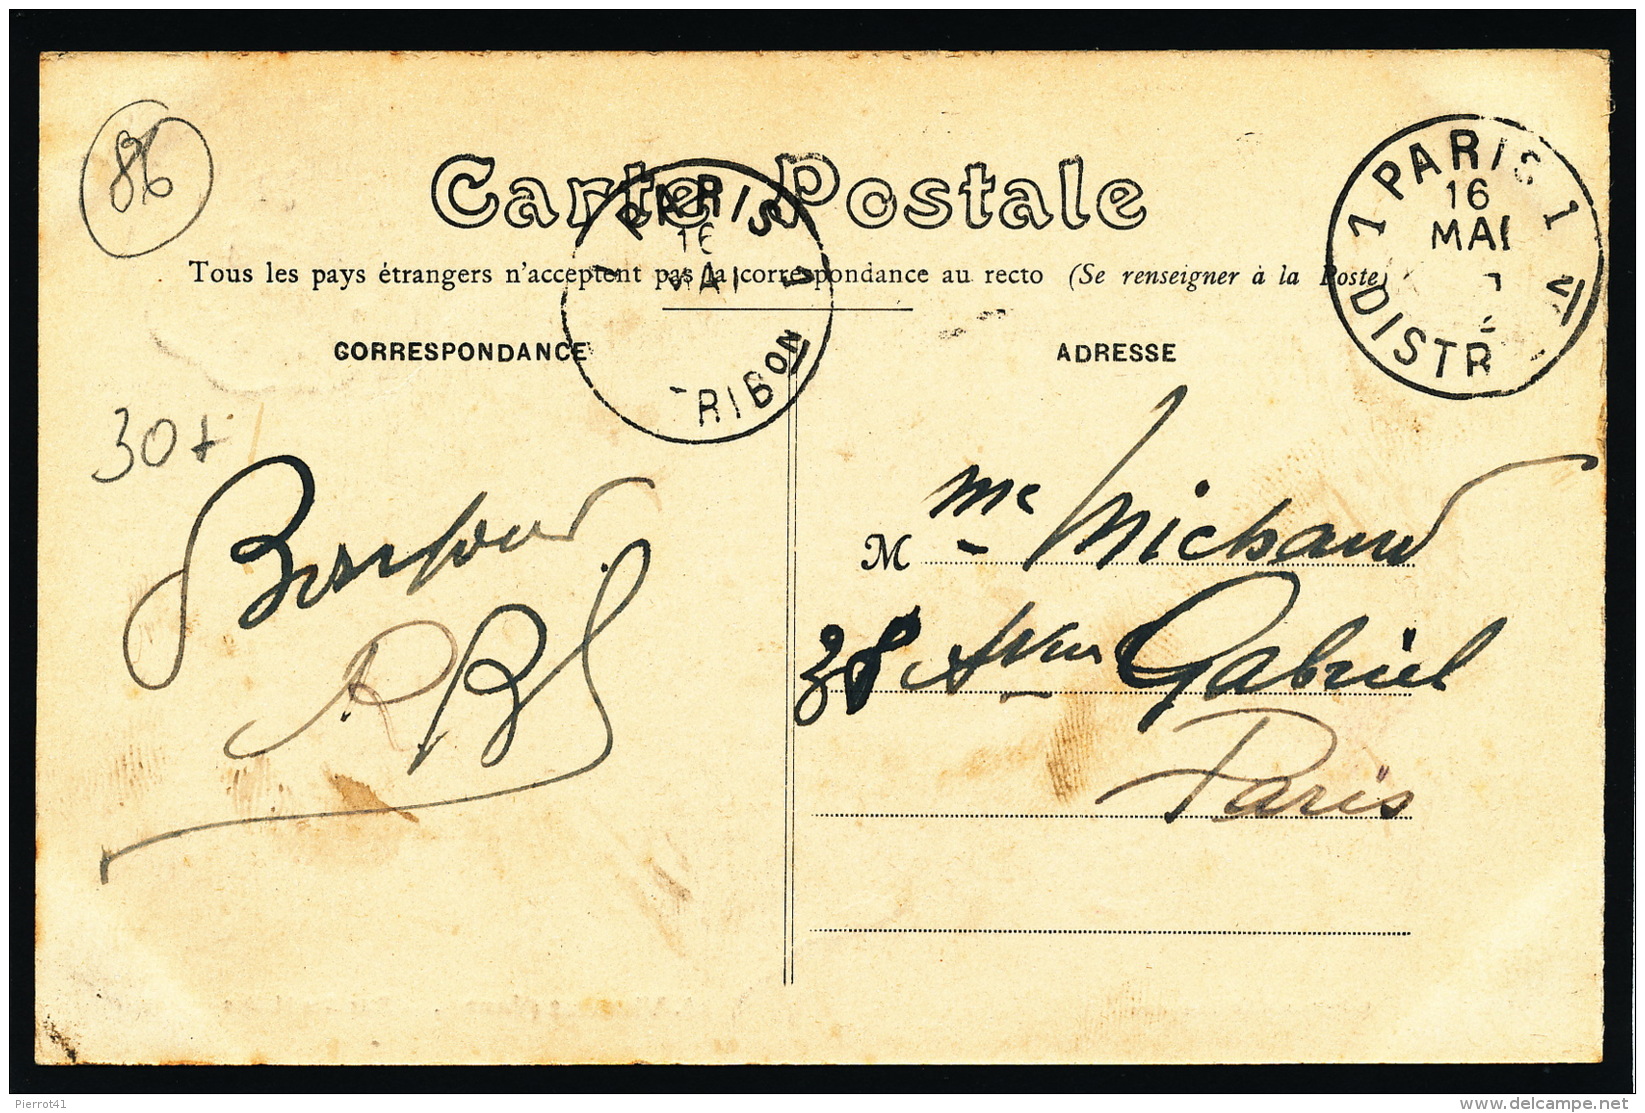 86
Carte Postale
PARIS 1
16
MAI
DISTR
PARIS
16
MAI
RIBON
Tous les pays étrangers n'acceptent pas la correspondance au recto (Se renseigner à la Poste)
CORRESPONDANCE
ADRESSE
30+
Bonjour
M me Michaud
38 Avenue Gabriel
Paris
Pierrot41
www.delcampe.net